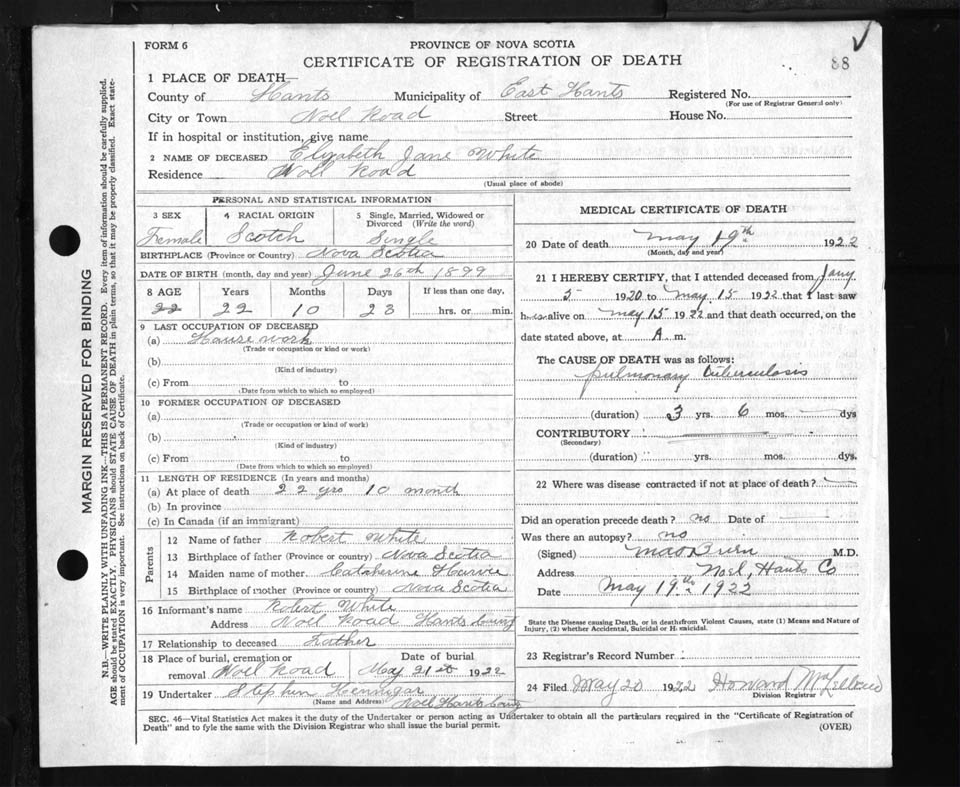 FORM 6
PROVINCE OF NOVA SCOTIA
88
CERTIFICATE OF REGISTRATION OF DEATH
1 PLACE OF DEATH—
County of Hants Municipality of East Hants Registered No.
(For use of Registrar General only)
City or Town Noel Road Street House No.
If in hospital or institution, give name
2 NAME OF DECEASED Elizabeth Jane White
Residence Noel Road
(Usual place of abode)
PERSONAL AND STATISTICAL INFORMATION
3 SEX 4 RACIAL ORIGIN 5 Single, Married, Widowed or Divorced (Write the word)
Female Scotch Single
BIRTHPLACE (Province or Country) Nova Scotia
DATE OF BIRTH (month, day and year) June 26th 1899
8 AGE Years Months Days If less than one day,
22 22 10 23 hrs. or min.
9 LAST OCCUPATION OF DECEASED
(a) House work
(Trade or occupation or kind or work)
(b)
(Kind of industry)
(c) From to
(Date from which to which so employed)
10 FORMER OCCUPATION OF DECEASED
(a)
(Trade or occupation or kind of work)
(b)
(Kind of industry)
(c) From to
(Date from which to which so employed)
11 LENGTH OF RESIDENCE (In years and months)
(a) At place of death 22 yrs 10 month
(b) In province
(c) In Canada (if an immigrant)
Parents
12 Name of father Robert White
13 Birthplace of father (Province or country) Nova Scotia
14 Maiden name of mother. Catherine Harvie
15 Birthplace of mother (Province or country) Nova Scotia
16 Informant's name Robert White
Address Noel Road Hants County
17 Relationship to deceased Father
18 Place of burial, cremation or Date of burial
removal Noel Road May 21st 1922
19 Undertaker Stephen Hennigar
(Name and Address) Noel Hants County
MEDICAL CERTIFICATE OF DEATH
20 Date of death May 19th 1922
(Month, day and year)
21 I HEREBY CERTIFY, that I attended deceased from Jany
5 1920 to May 15 1922 that I last saw
alive on May 15 1922 and that death occurred, on the
date stated above, at A. m.
The CAUSE OF DEATH was as follows:
pulmonary tuberculosis
(duration) 3 yrs. 6 mos. — dys
CONTRIBUTORY
(Secondary)
(duration) yrs. mos. dys.
22 Where was disease contracted if not at place of death? —
Did an operation precede death? no Date of
Was there an autopsy? no
(Signed) M.D.
Address Noel, Hants Co
Date May 19th 1922
State the Disease causing Death, or in deaths from Violent Causes, state (1) Means and Nature of
Injury, (2) whether Accidental, Suicidal or Homicidal.
23 Registrar's Record Number
24 Filed May 20 1922 Howard
Division Registrar
SEC. 46—Vital Statistics Act makes it the duty of the Undertaker or person acting as Undertaker to obtain all the particulars required in the "Certificate of Registration of
Death" and to fyle the same with the Division Registrar who shall issue the burial permit.
(OVER)
MARGIN RESERVED FOR BINDING
N.B.—WRITE PLAINLY WITH UNFADING INK—THIS IS A PERMANENT RECORD. Every item of information should be carefully supplied.
AGE should be stated EXACTLY. PHYSICIANS should STATE CAUSE OF DEATH in plain terms, so that it may be properly classified. Exact state-
ment of OCCUPATION is very important. See instructions on back of Certificate.